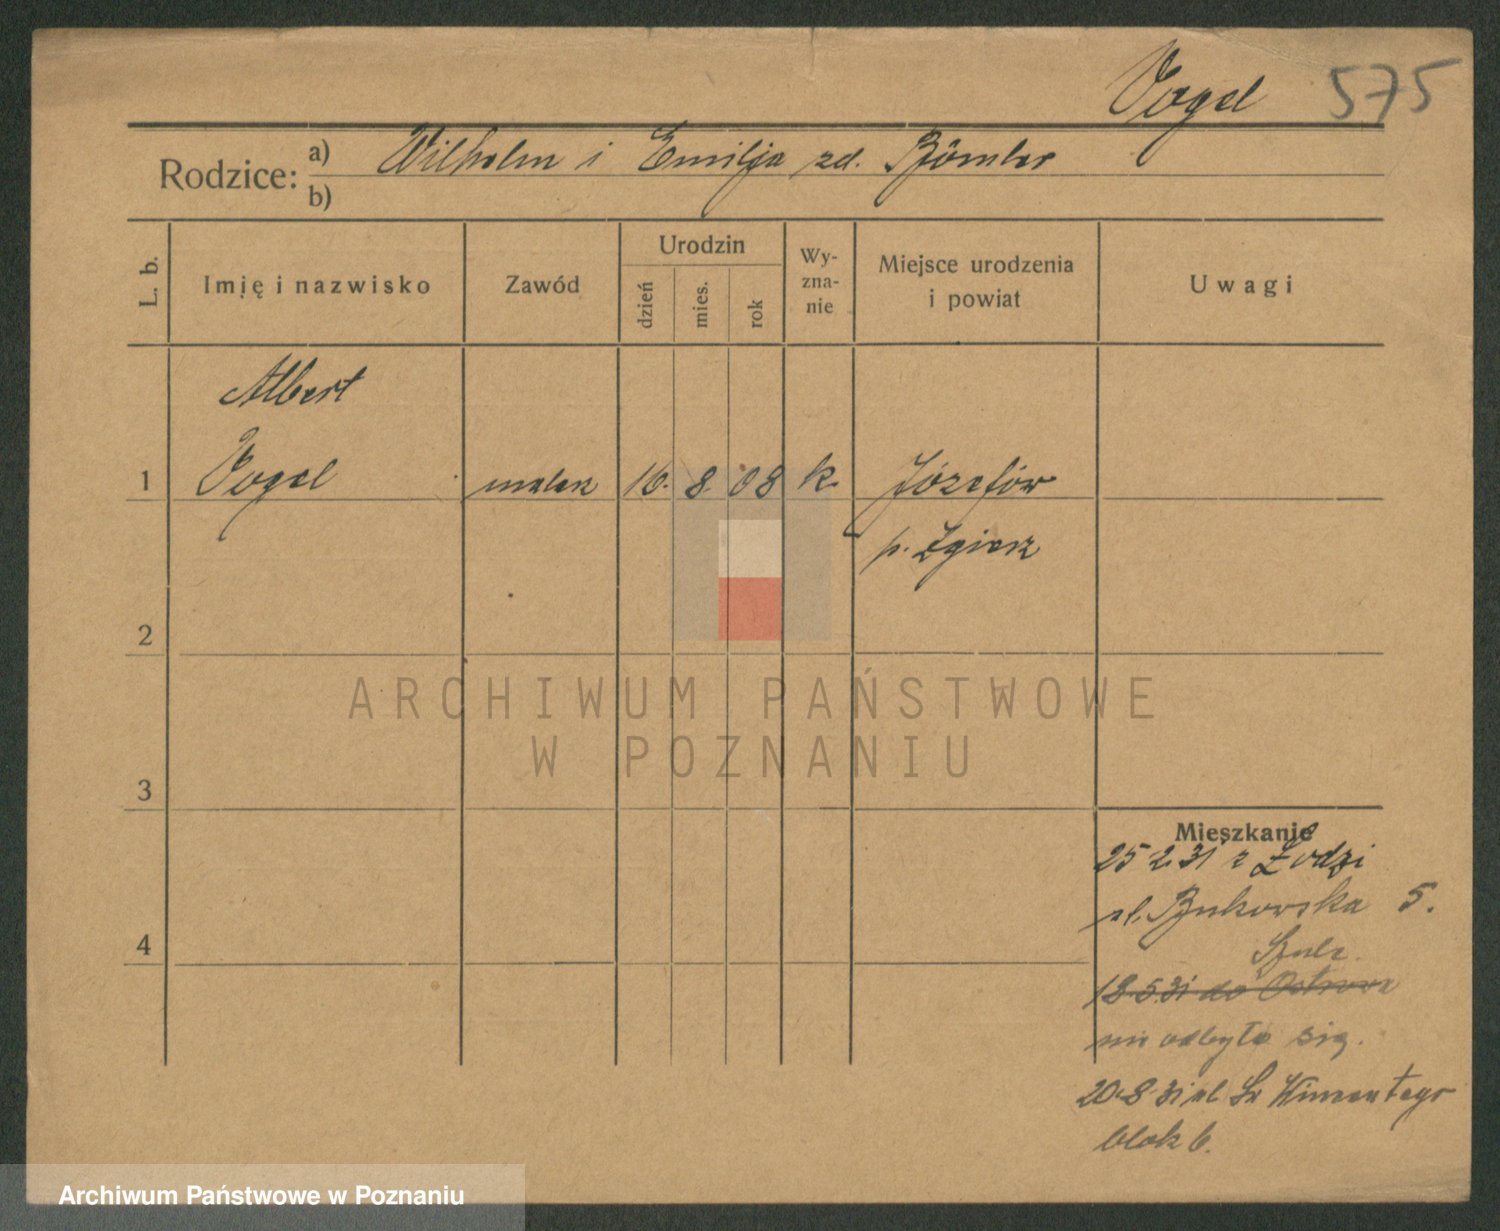 Vogel 575
Rodzice: a) Wilhelm i Emilja zd. Bömler
b)
L. b.
Imię i nazwisko
Zawód
Urodzin
dzień
mies.
rok
Wy-
zna-
nie
Miejsce urodzenia
i powiat
Uwagi
Albert
1 Vogel malarz 16. 8. 08 k. Józefów
p. Zgierz
2
3
4
ARCHIWUM PAŃSTWOWE
W POZNANIU
Mieszkanie
25 2 31 z Łodzi
ul. Bukowska 5.
Szulc.
18 5 31 do Ostrowa
nie odbyło się.
20.8.31 ul Św Wincentego
blok 6.
Archiwum Państwowe w Poznaniu